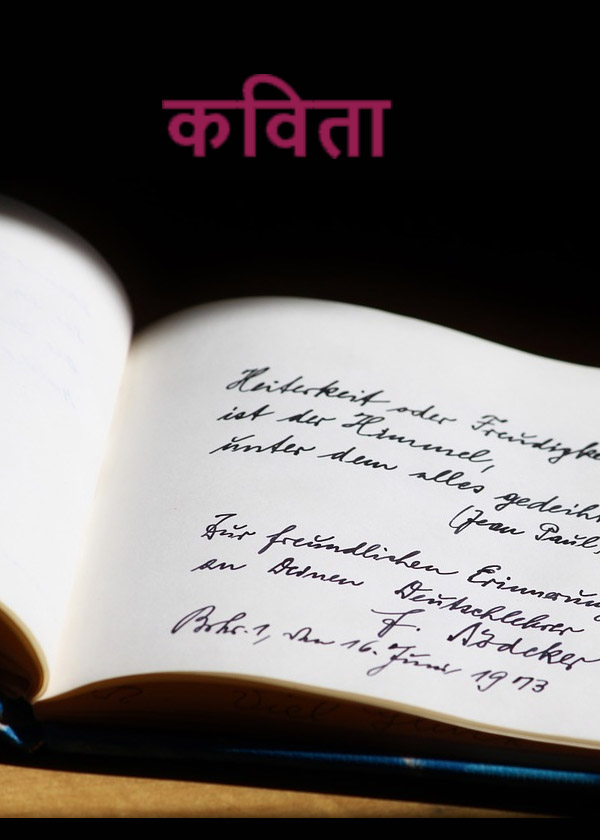 कविता
Heiterkeit oder Freudigke
ist der Himmel,
unter dem alles gedeiht
(Jean Paul,
Zur freundlichen Erinnerung
an Deinen Deutschlehrer
F.
den 16. Juni 1973